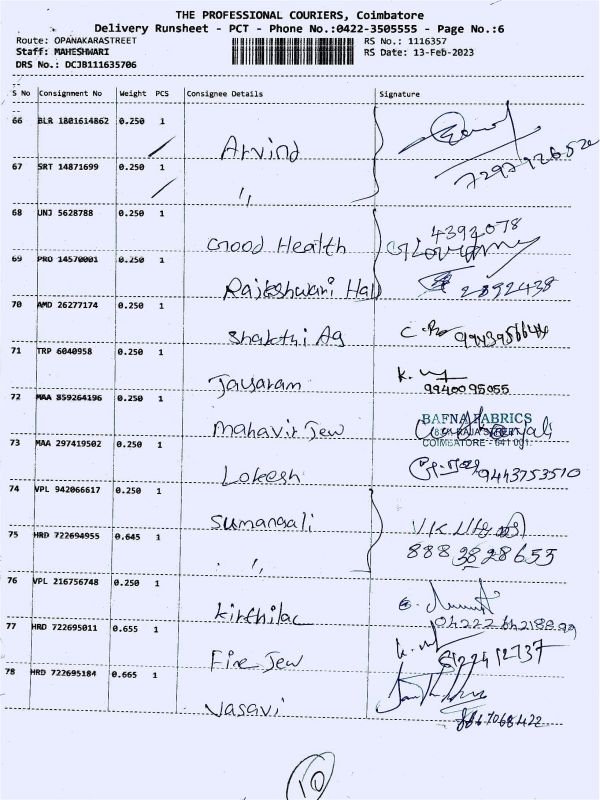 THE PROFESSIONAL COURIERS, Coimbatore
Delivery Runsheet - PCT - Phone No.:0422-3505555 - Page No.:6
Route: OPANAKARASTREET RS No.: 1116357
Staff: MAHESHWARI RS Date: 13-Feb-2023
DRS No.: DCJB111635706
S No Consignment No Weight PCS Consignee Details Signature
66 BLR 1801614862 0.250 1 Arvind
67 SRT 14871699 0.250 1 "
68 UNJ 5628788 0.250 1 Good Health 4392078
69 PRO 14570001 0.250 1 Rajeshwari Hall 2892438
70 AMD 26277174 0.250 1 Shakthi Ag
71 TRP 6040958 0.250 1 Jayaram K.
9940095055
72 MAA 859264196 0.250 1 Mahavir Jew BAFNA FABRICS
COIMBATORE - 641 001.
73 MAA 297419502 0.250 1 Lokesh 9443753510
74 VPL 942066617 0.250 1 Sumangali
75 HRD 722694955 0.645 1 " 8883828655
76 VPL 216756748 0.250 1 Kirthilac
77 HRD 722695011 0.655 1 Fine Jew
8122412737
78 HRD 722695184 0.665 1 Vasavi
10